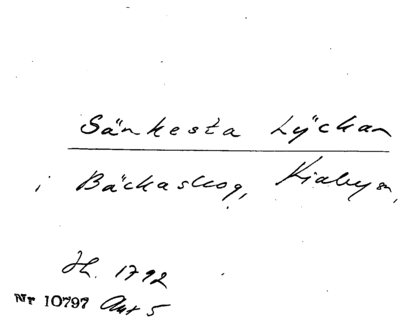 Sänkesta Lÿckan
i Bäckaskog, Kiaby sn,
Jh. 1792
Nr 10797 Aut 5